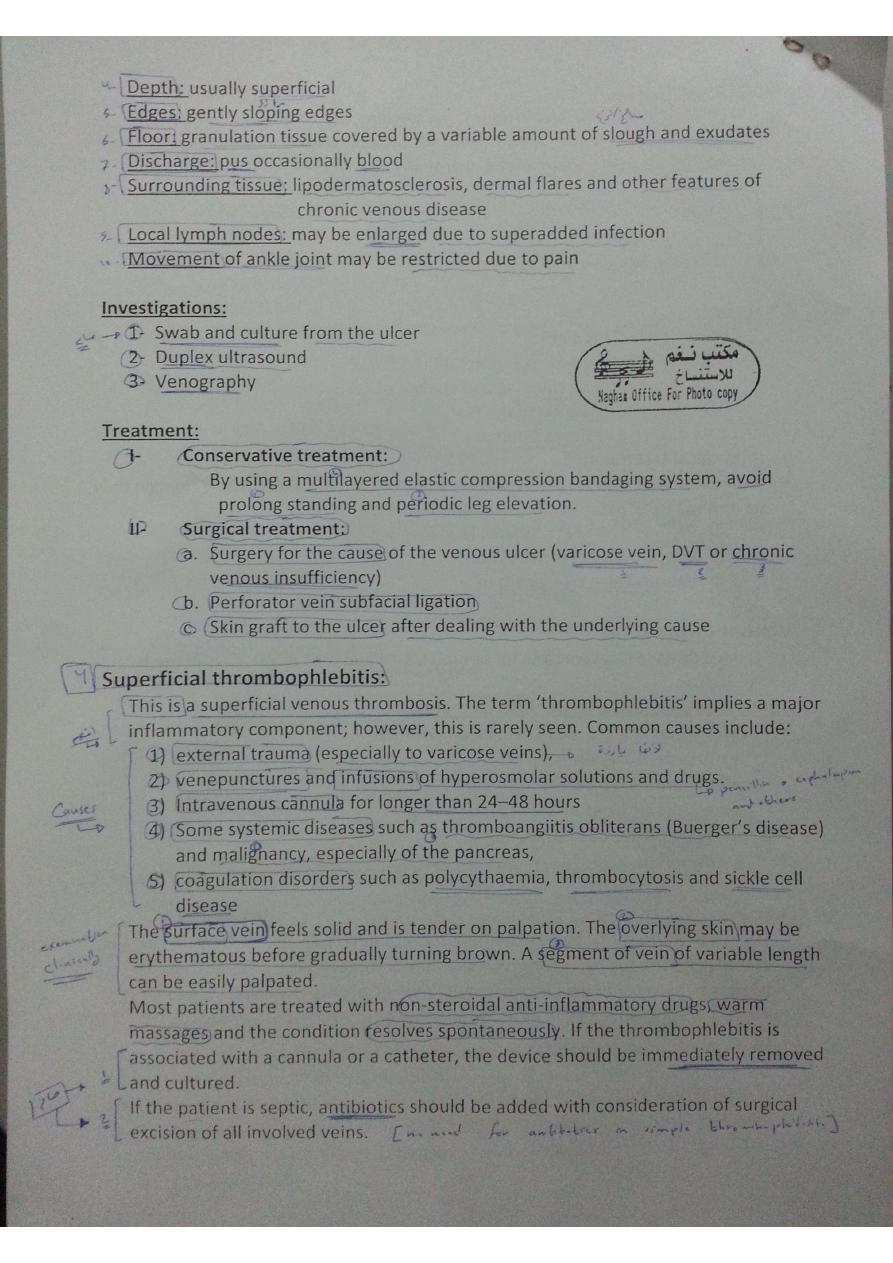 4- Depth: usually superficial
5- Edges: gently sloping edges
6- Floor: granulation tissue covered by a variable amount of slough and exudates
7- Discharge: pus occasionally blood
8- Surrounding tissue: lipodermatosclerosis, dermal flares and other features of
chronic venous disease
9- Local lymph nodes: may be enlarged due to superadded infection
Movement of ankle joint may be restricted due to pain
Investigations:
1- Swab and culture from the ulcer
2- Duplex ultrasound
3- Venography
مكتب نغم
للاستنساخ
Nagham Office For Photo copy
Treatment:
I- Conservative treatment:
By using a multilayered elastic compression bandaging system, avoid
prolong standing and periodic leg elevation.
II- Surgical treatment:
a. Surgery for the cause of the venous ulcer (varicose vein, DVT or chronic
venous insufficiency)
b. Perforator vein subfacial ligation
c. Skin graft to the ulcer after dealing with the underlying cause
4 Superficial thrombophlebitis:
This is a superficial venous thrombosis. The term ‘thrombophlebitis’ implies a major
inflammatory component; however, this is rarely seen. Common causes include:
1) external trauma (especially to varicose veins),
2) venepunctures and infusions of hyperosmolar solutions and drugs.
and others
Causes
3) Intravenous cannula for longer than 24–48 hours
4) Some systemic diseases such as thromboangiitis obliterans (Buerger’s disease)
and malignancy, especially of the pancreas,
5) coagulation disorders such as polycythaemia, thrombocytosis and sickle cell
disease
examination
clinically
The surface vein feels solid and is tender on palpation. The overlying skin may be
erythematous before gradually turning brown. A segment of vein of variable length
can be easily palpated.
Most patients are treated with non-steroidal anti-inflammatory drugs, warm
massages and the condition resolves spontaneously. If the thrombophlebitis is
associated with a cannula or a catheter, the device should be immediately removed
and cultured.
If the patient is septic, antibiotics should be added with consideration of surgical
excision of all involved veins. [no need for antibiotics in simple thrombophlebitis.]